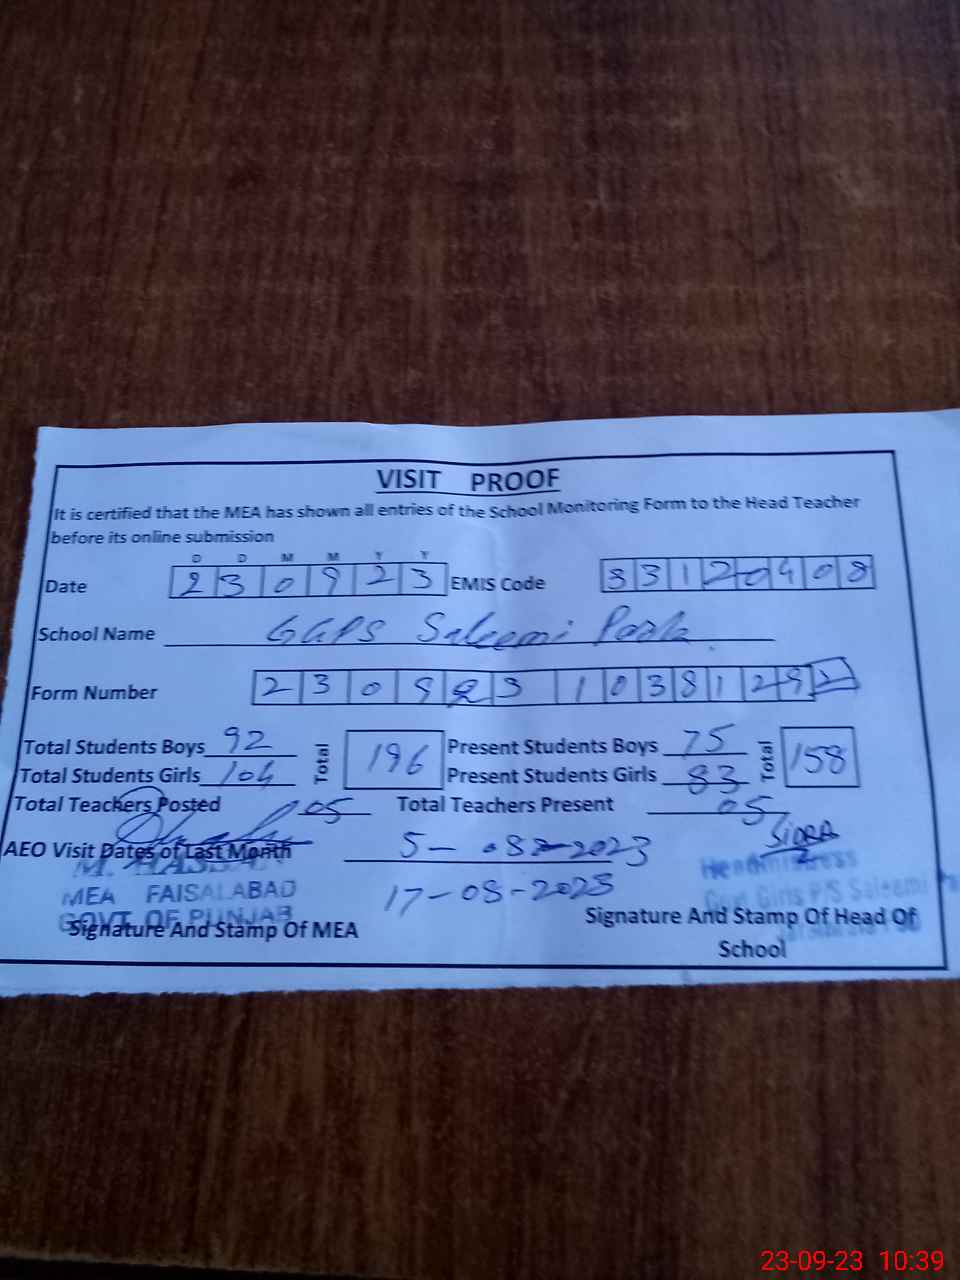 VISIT PROOF
It is certified that the MEA has shown all entries of the School Monitoring Form to the Head Teacher
before its online submission
D D M M Y Y
Date 2 3 0 9 2 3 EMIS Code 3 3 1 2 0 4 0 8
School Name GGPS Saleemi Park
Form Number 2 3 0 9 2 3 1 0 3 8 1 2 9
Total Students Boys 92 Total 196 Present Students Boys 75 Total 158
Total Students Girls 104 Present Students Girls 83
Total Teachers Posted 05 Total Teachers Present 05
AEO Visit Dates of Last Month 5- 08-2023
17-08-2023
M. HASSAN
MEA FAISALABAD
GOVT. OF PUNJAB
Signature And Stamp Of MEA
Headmistress
Govt Girls P/S Saleemi
Signature And Stamp Of Head Of
School
23-09-23 10:39